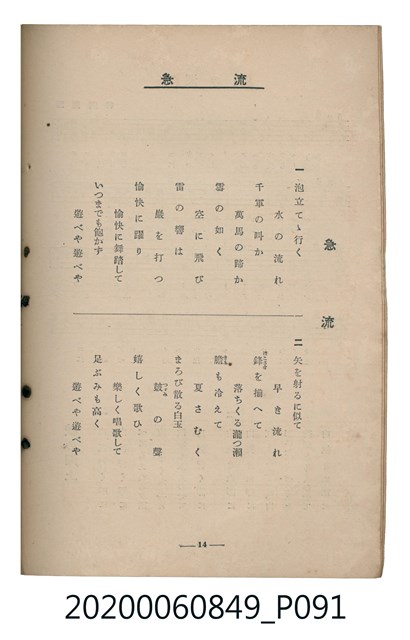 急流
急流
一 泡立てゝ行く
水の流れ
千軍の叫か
萬馬の蹄か
雲の如く
空に飛び
雷の響は
巖を打つ
愉快に躍り
愉快に舞踏して
いつまでも飽かず
遊べや遊べや
二 矢を射るに似て
早き流れ
鋒を揃へて
落ちくる瀧つ瀬
膽も冷えて
夏さむく
まろび散る白玉
鼓の聲
嬉しく歌ひ
樂しく唱歌して
足ぶみも高く
遊べや遊べや
—14—
20200060849_P091